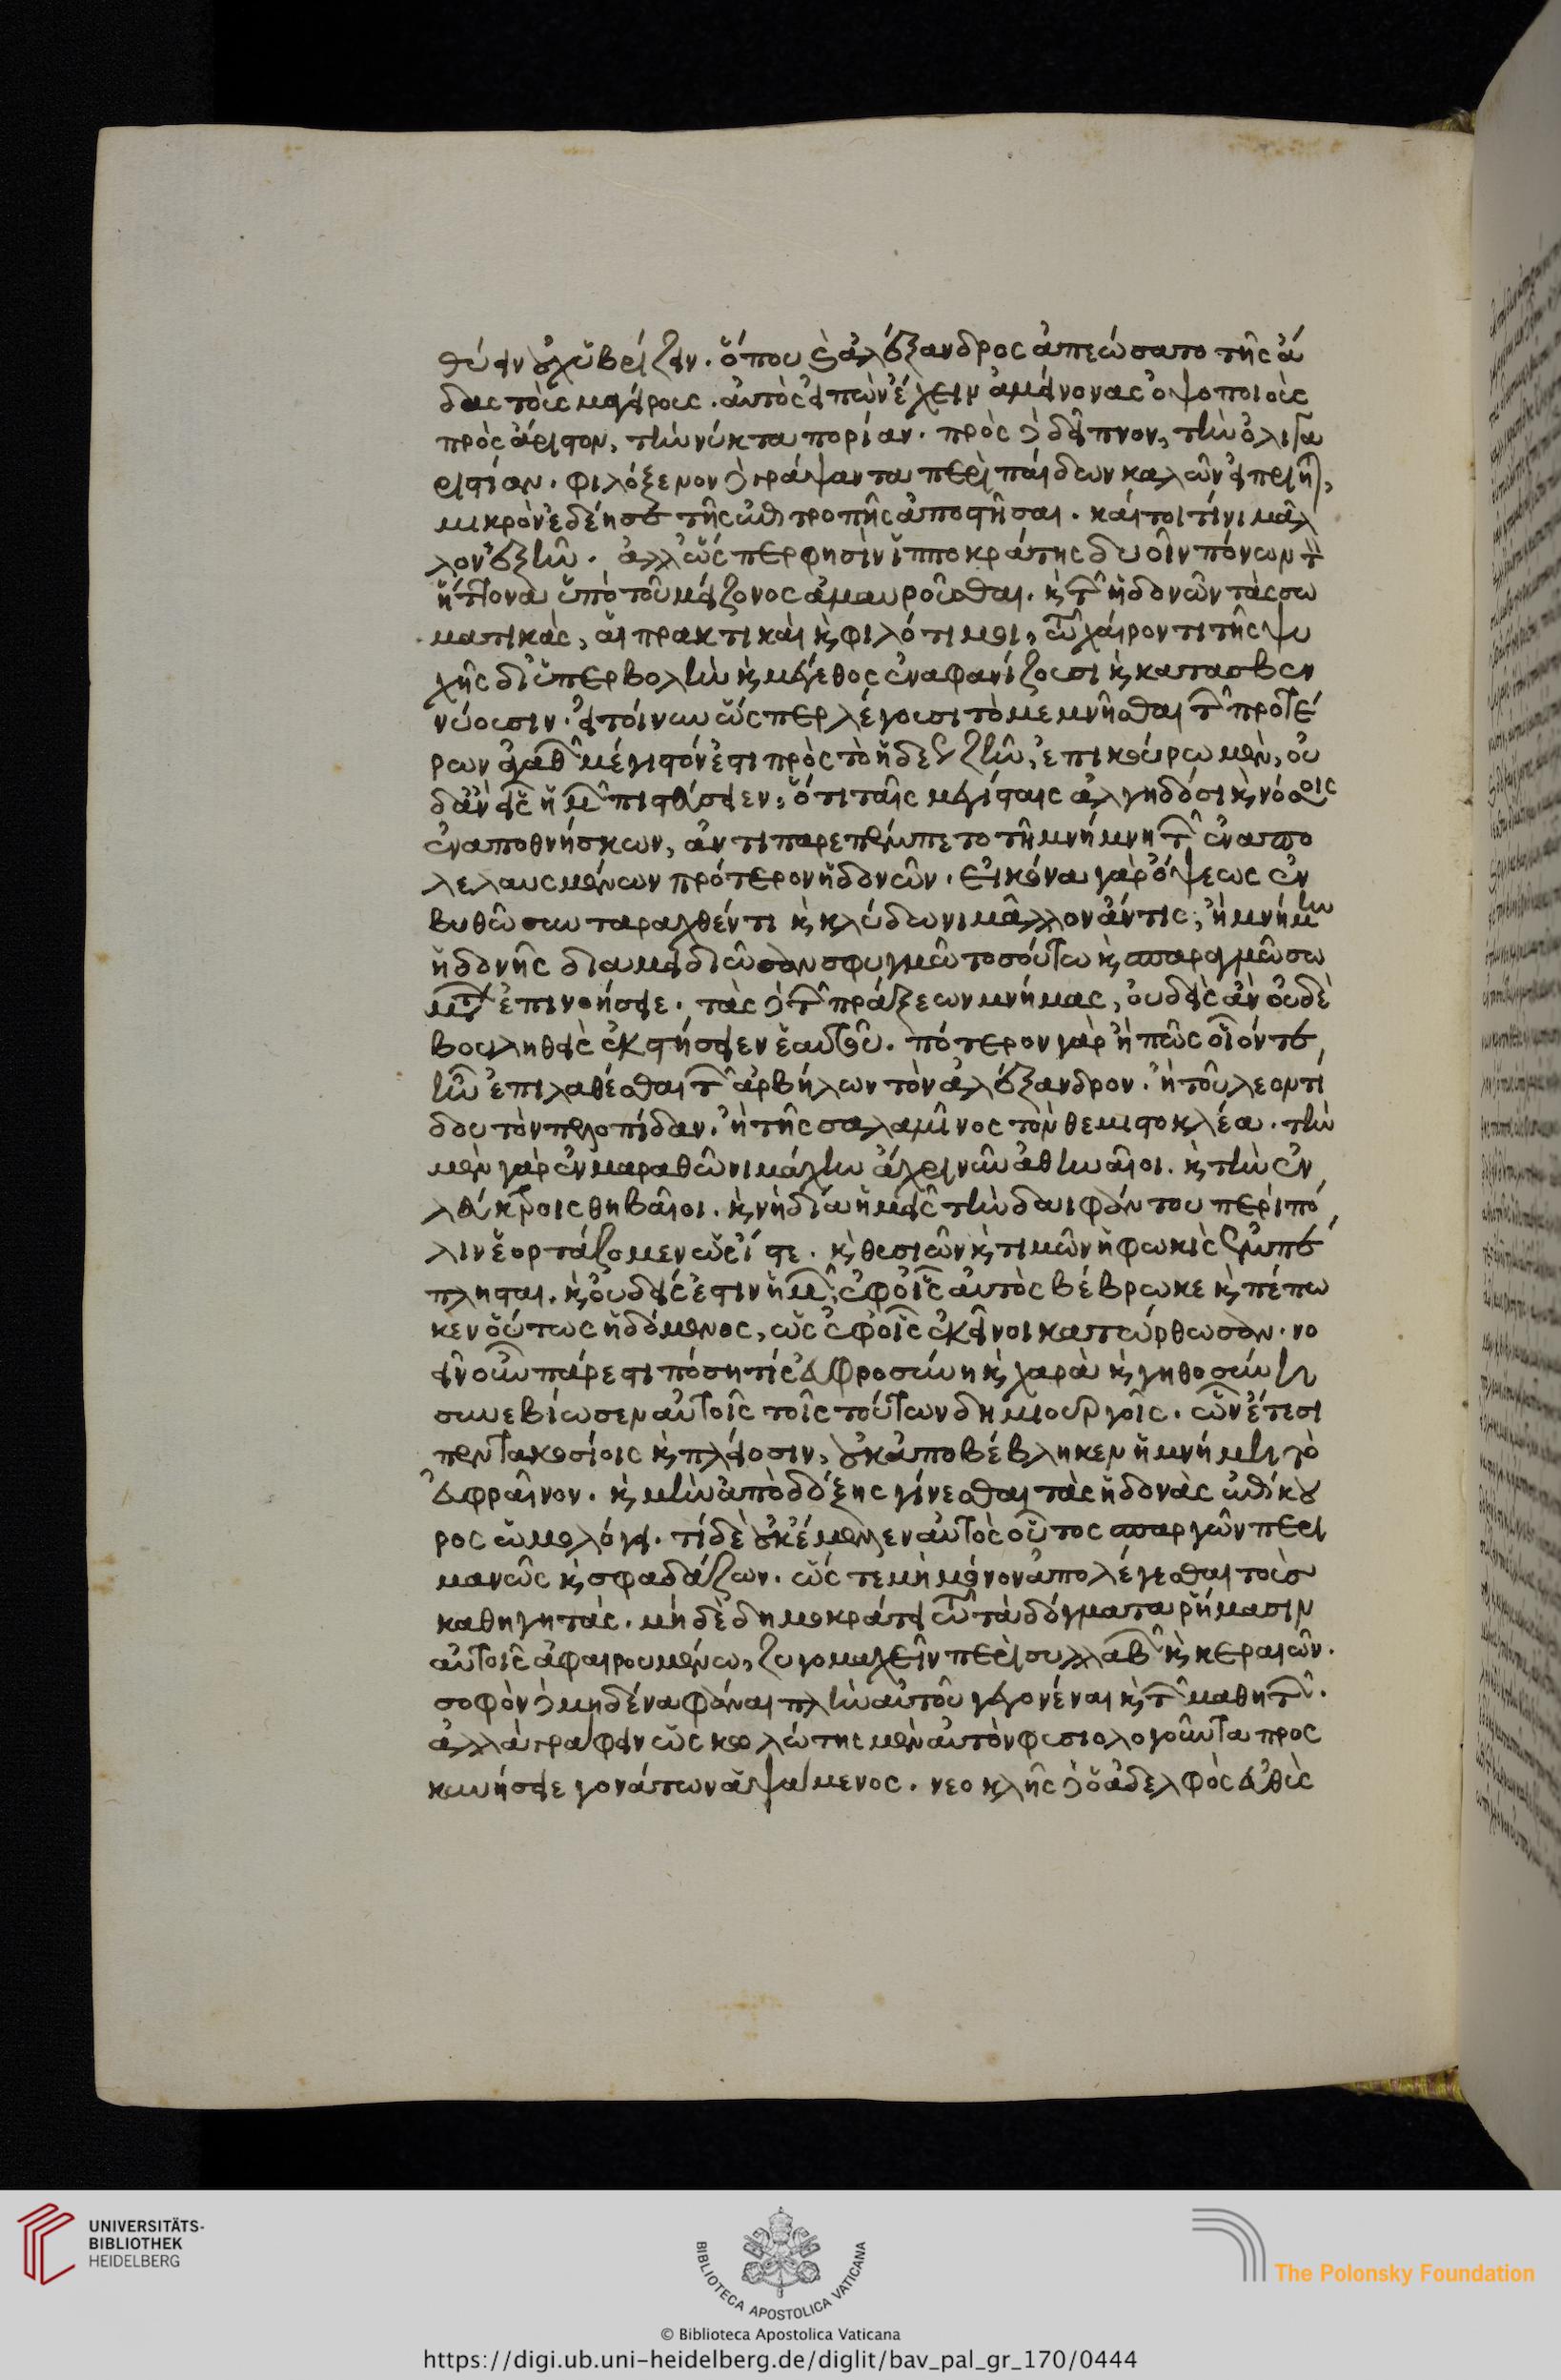 θύειν οὐχ ὑβρίζειν. ὅπου καὶ ἀλέξανδρος ἀπεώσατο τῆς ἄ
δας τοὺς μαγείρους. αὐτὸς εἰπὼν ἔχειν ἀμείνονας ὀψοποιοὺς
πρὸς ἄριστον, τὴν νυκταπορίαν. πρὸς δὲ δεῖπνον, τὴν ὀλιγα
ριστίαν. φιλόξενον δὲ γράψαντα περὶ παίδων καλῶν εἰ πρίηται,
μικρὸν ἐδέησε τῆς ἐπιτροπῆς ἀποστῆσαι. καίτοι τίνι μᾶλ
λον ἐξῆν. ἀλλ' ὥσπερ φησὶν ἱπποκράτης δυοῖν πόνων τὸν
ἥττονα ὑπὸ τοῦ μείζονος ἀμαυροῦσθαι. καὶ τῶν ἡδονῶν τὰς σω
ματικὰς, αἱ πρακτικαὶ καὶ φιλότιμοι, τῷ χαίροντι τῆς ψυ
χῆς δι' ὑπερβολὴν καὶ μέγεθος ἐναφανίζουσι καὶ κατασβεν
νύουσιν. εἰ τοίνυν ὥσπερ λέγουσι τὸ μεμνῆσθαι τῶν προτέ
ρων ἀγαθῶν μέγιστόν ἐστι πρὸς τὸ ἡδέως ζῆν, ἐπικούρω μὲν, οὐ
δ' ἂν εἷς ἡμῶν πιστεύσειεν, ὅτι ταῖς μεγίσταις ἀλγηδόσι καὶ νόσοις
ἐναποθνήσκων, ἀντιπαρεπέμπετο τῇ μνήμνη τῶν ἐναπο
λελαυσμένων πρότερον ἡδονῶν. εἰκόνα γὰρ ὄψεως ἐν
βυθῷ συνταραχθέντι καὶ κλύδωνι μᾶλλον ἄν τις, ἢ μνήμην
ἡδονῆς διαμειδιῶσαν σφυγμῷ τοσούτω καὶ σπαραγμῷ σώ
ματος ἐπινοήσειε. τὰς δὲ τῶν πράξεων μνήμας, οὐδεὶς ἂν οὐδὲ
βουληθεὶς ἐκστήσειεν ἑαυτοῦ. πότερον γὰρ ἢ πῶς οἷόντε
ἦν ἐπιλαθέσθαι τῶν ἀρβήλων τὸν ἀλέξανδρον. ἢ τοῦ λεοντί
δου τὸν πελοπίδαν. ἢ τῆς σαλαμῖνος τὸν θεμιστοκλέα. τὴν
μὲν γὰρ ἐν μαραθῶνι μάχην ἄχρι νῦν ἀθηναῖοι. καὶ τὴν ἐν
λεύκτροις θηβαῖοι. καὶ νὴ δία ἡμεῖς τὴν δαιφάντου περὶ πό
λιν ἑορτάζομεν ὡς ἴστε. καὶ θυσιῶν καὶ τιμῶν ἡ φωκὶς ἐμπέ
πλησται. καὶ οὐδείς ἐστιν ἡμῶν, ἐφ' οἷς αὐτὸς βέβρωκε καὶ πέπω
κεν οὕτως ἡδόμενος, ὡς ἐφ' οἷς ἐκεῖνοι κατώρθωσαν. νο
εῖν οὖν πάρεστι πόση τίς εὐφροσύνη καὶ χαρὰ καὶ γηθοσύνη
συνεβίωσεν αὐτοῖς τοῖς τούτων δημιουργοῖς. ὧν ἔτεσι
πεντακοσίοις καὶ πλείοσιν, οὐκ ἀποβέβληκεν ἡ μνήμη τὸ
εὐφραῖνον. καὶ μὴν ἀπὸ δόξης γίνεσθαι τὰς ἡδονὰς ἐπίκου
ρος ὡμολόγει. τί δὲ οὐκ ἔμελλεν αὐτὸς οὕτος σπαργῶν περι
μανῶς καὶ σφαδάζων. ὥστε μὴ μόνον ἀπολέγεσθαι τοὺς
καθηγητὰς. μηδὲ δημοκράτει τῷ τὰ δόγματα ῥήμασιν
αὐτοῖς ἀφαιρουμένω, ζυγομαχεῖν περὶ συλλαβῶν καὶ κεραιῶν.
σοφὸν δὲ μηδένα φάναι πλὴν αὐτοῦ γεγονέναι καὶ τῶν μαθητῶν.
ἀλλὰ γράφειν ὡς κωλώτης μὲν αὐτὸν φυσιολογοῦντα προς
κυνήσειε γονάτων ἁψάμενος. νεοκλῆς δὲ ὁ ἀδελφὸς εὐθὺς
UNIVERSITÄTS-
BIBLIOTHEK
HEIDELBERG
BIBLIOTECA APOSTOLICA VATICANA
The Polonsky Foundation
© Biblioteca Apostolica Vaticana
https://digi.ub.uni-heidelberg.de/diglit/bav_pal_gr_170/0444